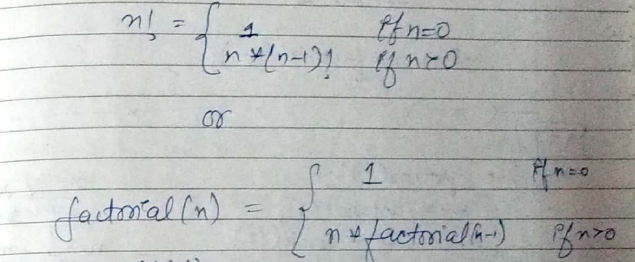 n! = { 1 if n=0
n*(n-1)! if n>0
or
factorial(n) = { 1 if n=0
n * factorial(n-1) if n>0